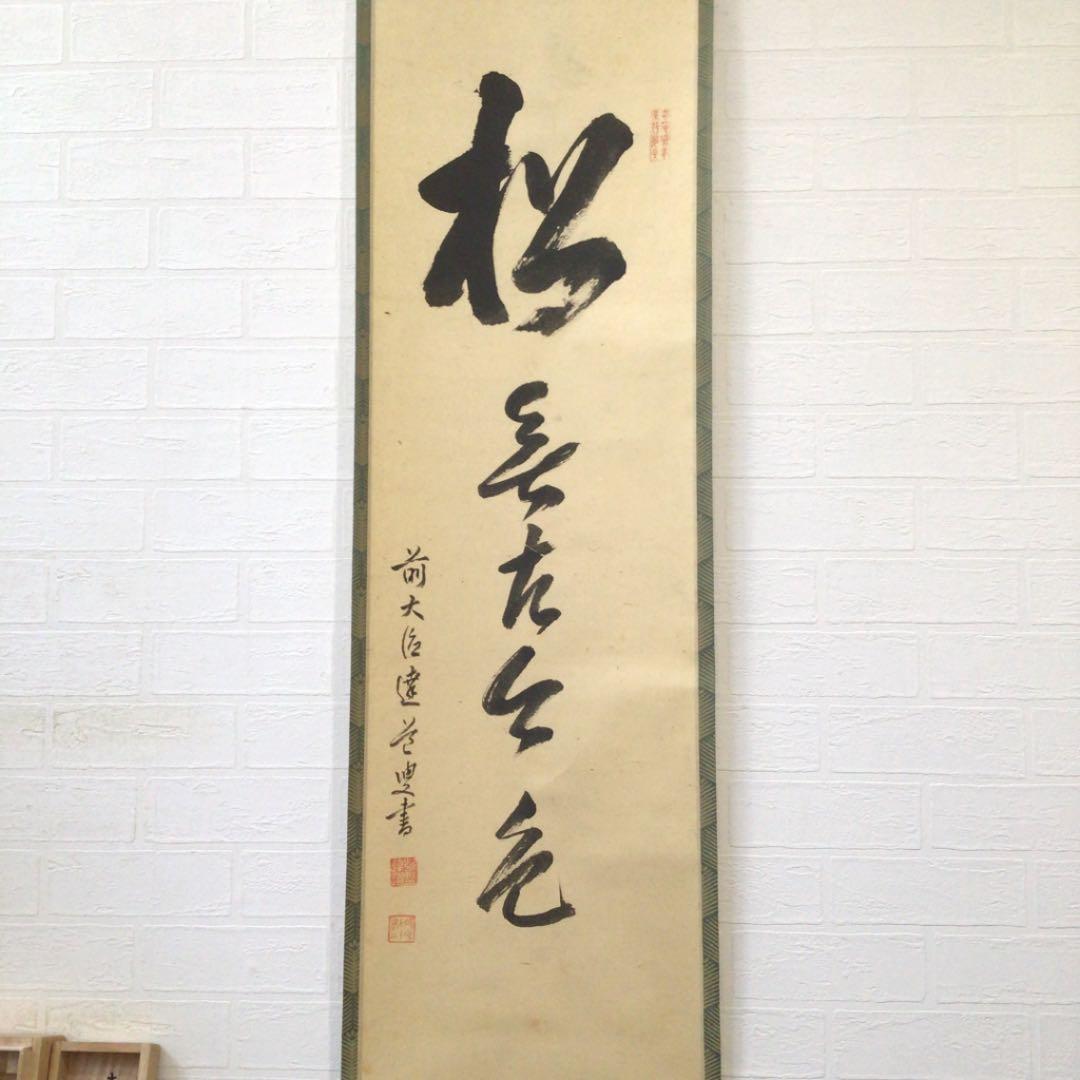 松無古今色
前大徳達道叟書